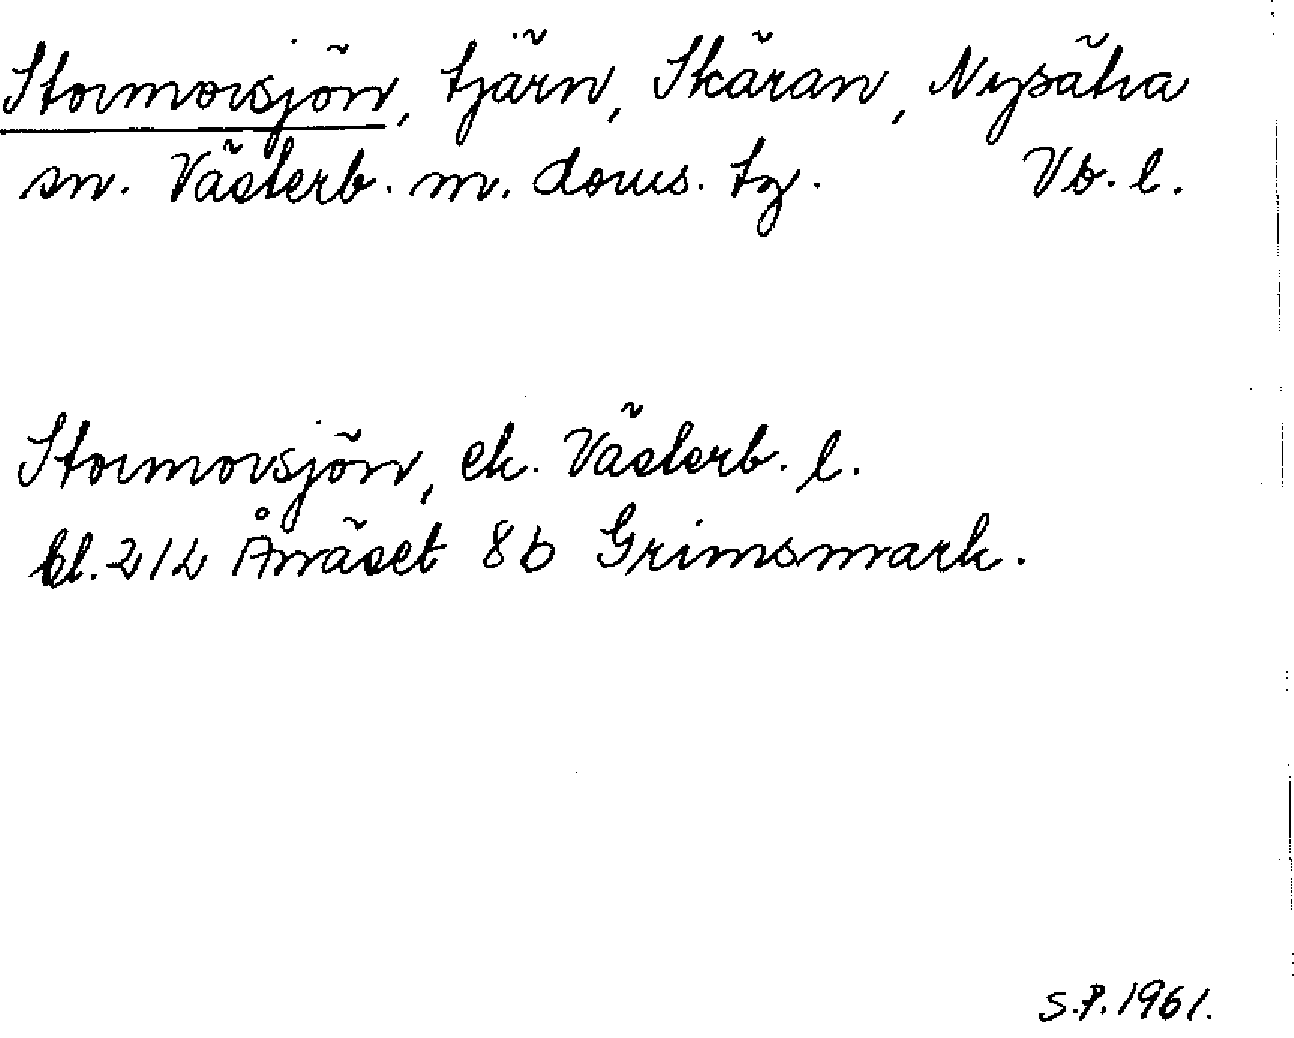 Stormorsjön, tjärn, Skäran, Nysätra
sn. Västerb. m. doms. tg. Vb. l.
Stormorsjön, ek. Västerb. l.
bl. 212 Ånäset 8b Grimsmark.
S.P. 1961.